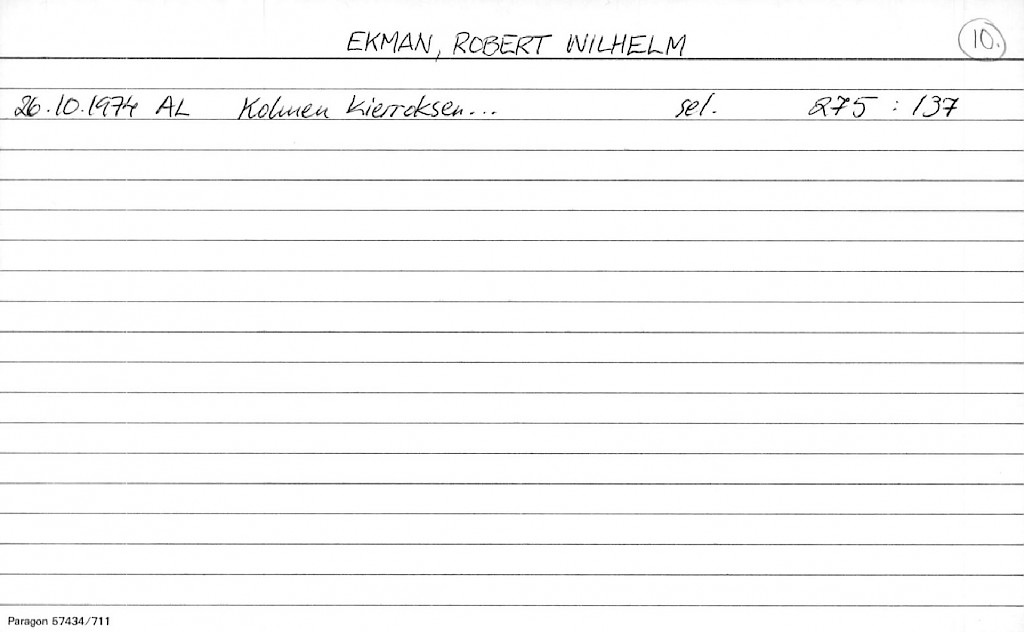 EKMAN, ROBERT WILHELM 10.
26.10.1974 AL Kolmen kierroksen... sel. 275 : 137
Paragon 57434/711